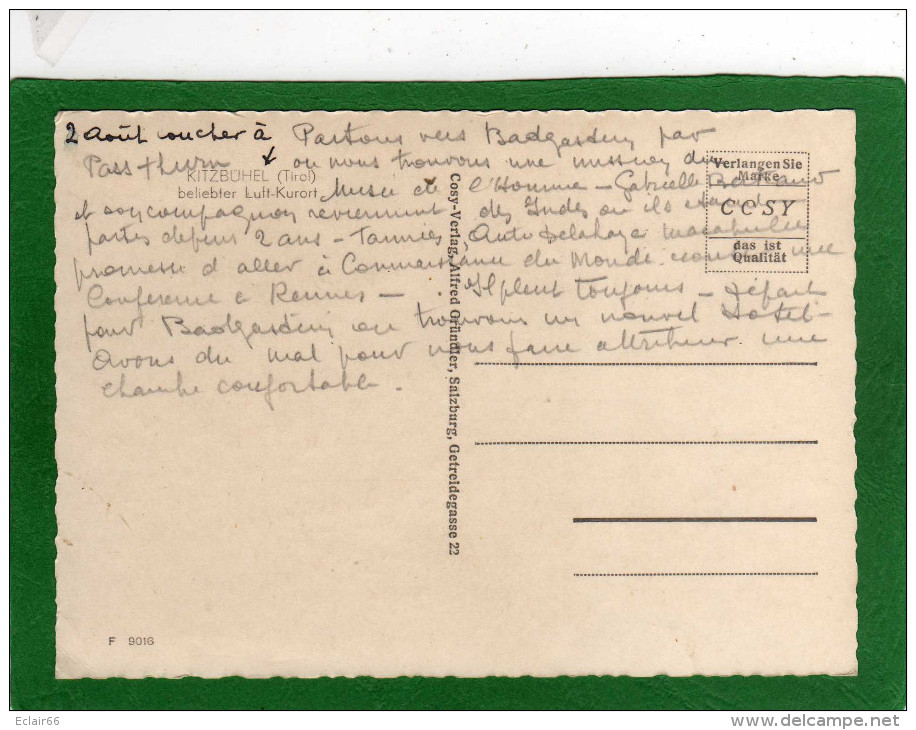 2 Août coucher à Partons vers Badgastein par
Pass Thurn ou nous trouvons une mission du
KITZBÜHEL (Tirol)
beliebter Luft-Kurort
Musée de l'Homme - Gabrielle Bertrand
et son compagnon reviennent des Indes où ils étaient
partis depuis 2 ans - Auto Delahaye
promesse d'aller à Connaissance du Monde une
Conférence à Rennes - Il pleut toujours - Départ
pour Badgastein ou trouvons un nouvel Hotel -
Avons du mal pour nous faire attribuer une
chambre confortable.
Verlangen Sie
Marke
COSY
das ist
Qualität
Cosy-Verlag, Alfred Gründler, Salzburg, Getreidegasse 22
F 9016
Eclair66
www.delcampe.net